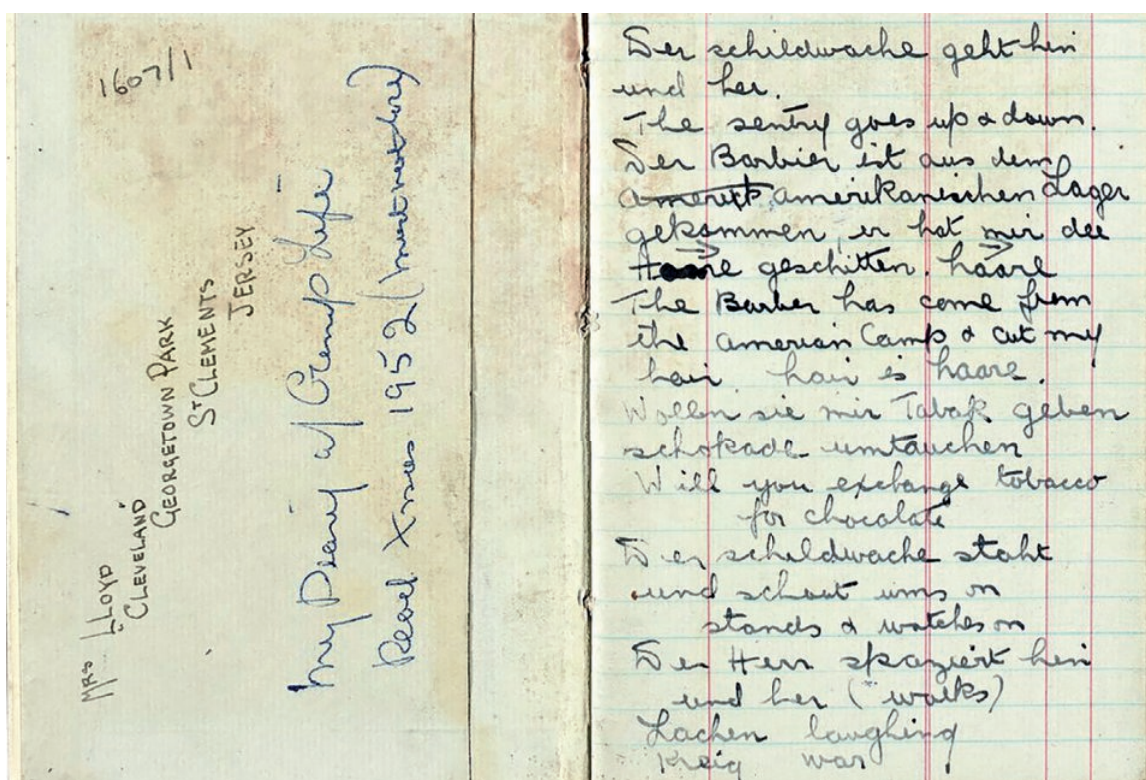 1607/1
Mrs Lloyd
CLEVELAND
GEORGETOWN PARK
ST CLEMENTS
JERSEY
my Diary of Camp Life
Read Xmas 1952 (must not lose)
Der schildwache geht hin
und her.
The sentry goes up & down.
Der Barbier ist aus dem
amerik amerikanischen Lager
gekommen, er hat mir die
Haare geschitten. haare
The Barber has come from
the amerian Camp & cut my
hair. hair is haare.
Wollen sie mir Tabak geben
schokade umtauchen
Will you exchange tobacco
for chocolate
Der schildwache staht
und schaut uns on
stands & watches on
Der Herr spaziert hin
und her (walks)
Lachen laughing
Kreig war